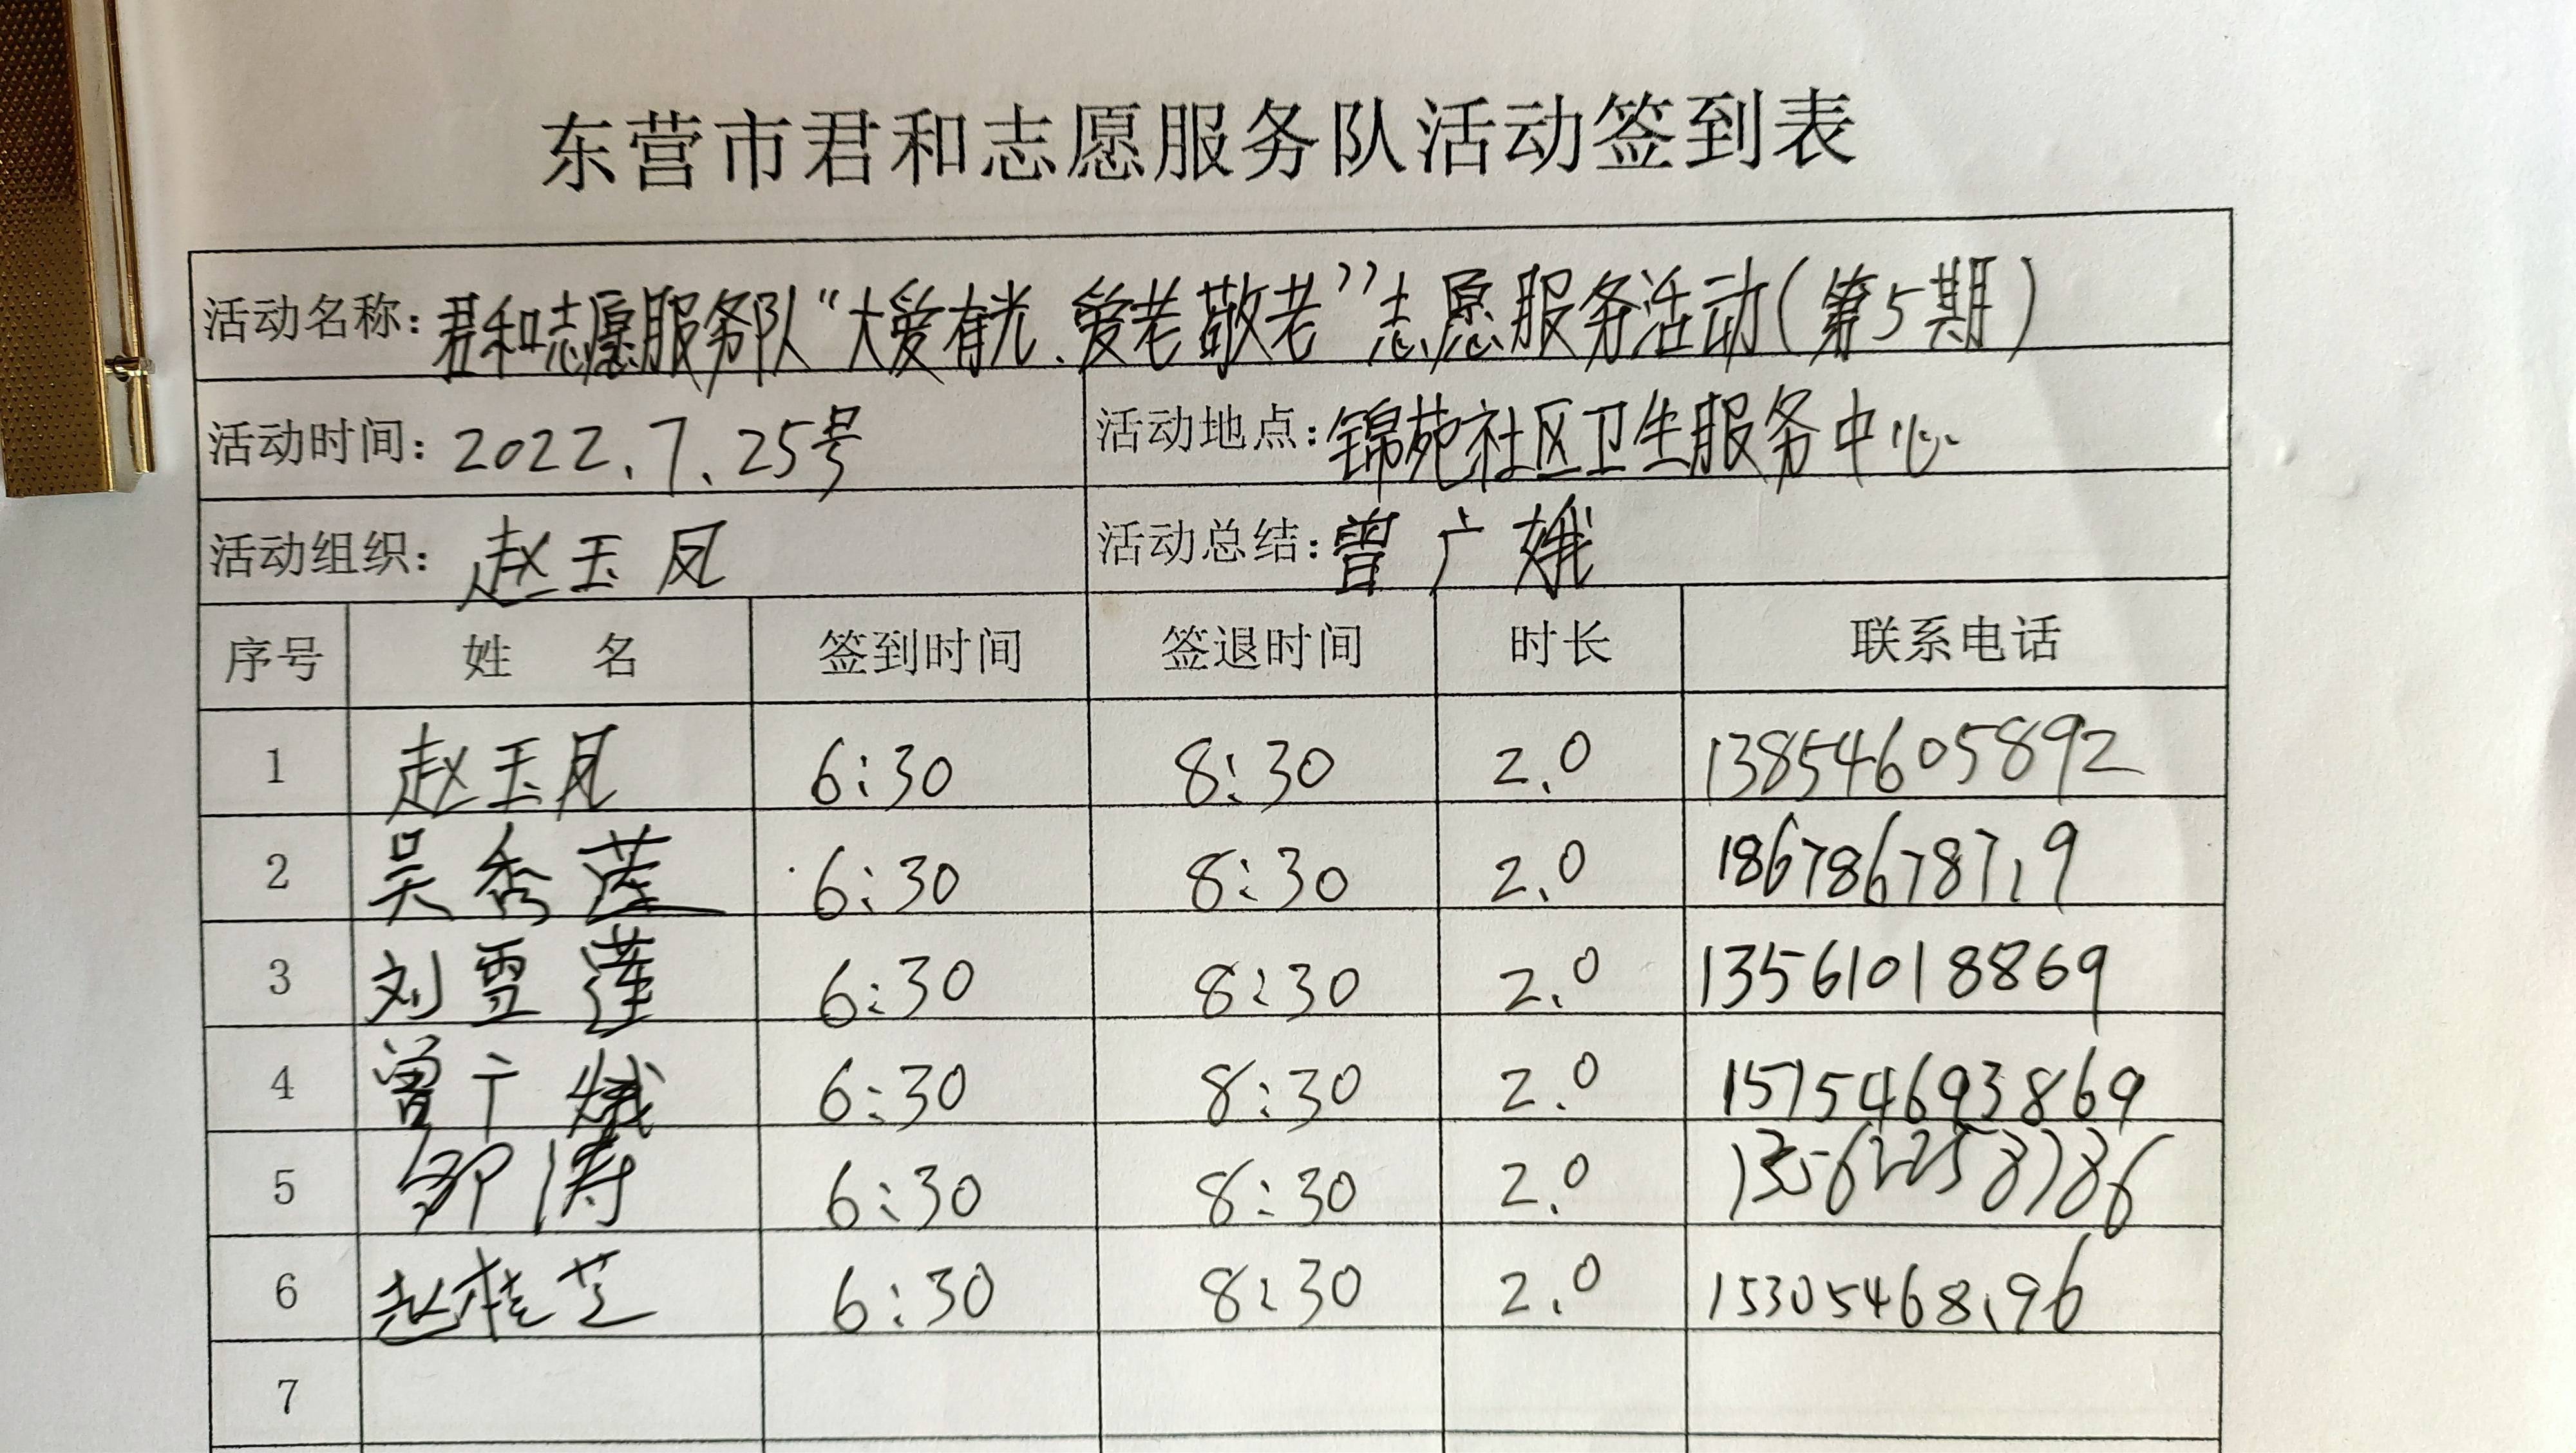 东营市君和志愿服务队活动签到表
活动名称：君和志愿服务队“大爱有光、爱老敬老”志愿服务活动（第5期）
活动时间：2022.7.25号 活动地点：锦苑社区卫生服务中心
活动组织：赵玉凤 活动总结：曾广娥
序号 姓名 签到时间 签退时间 时长 联系电话
1 赵玉凤 6:30 8:30 2.0 13854605892
2 吴秀莲 6:30 8:30 2.0 18678678719
3 刘雪莲 6:30 8:30 2.0 13561018869
4 曾广娥 6:30 8:30 2.0 15754693869
5 邹涛 6:30 8:30 2.0 13562258786
6 赵桂芝 6:30 8:30 2.0 15305468196
7